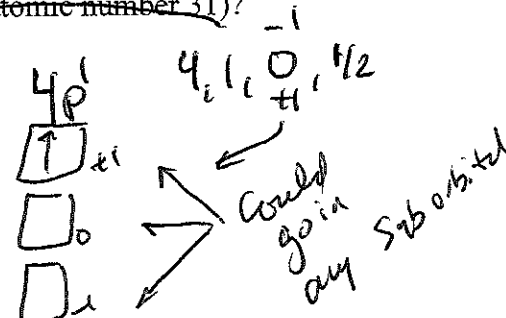 atomic number 31)?
-1
4, 1, 0, 1/2
+1
4p¹
↑ +1
0
-1
Could
go in
any Suborbital